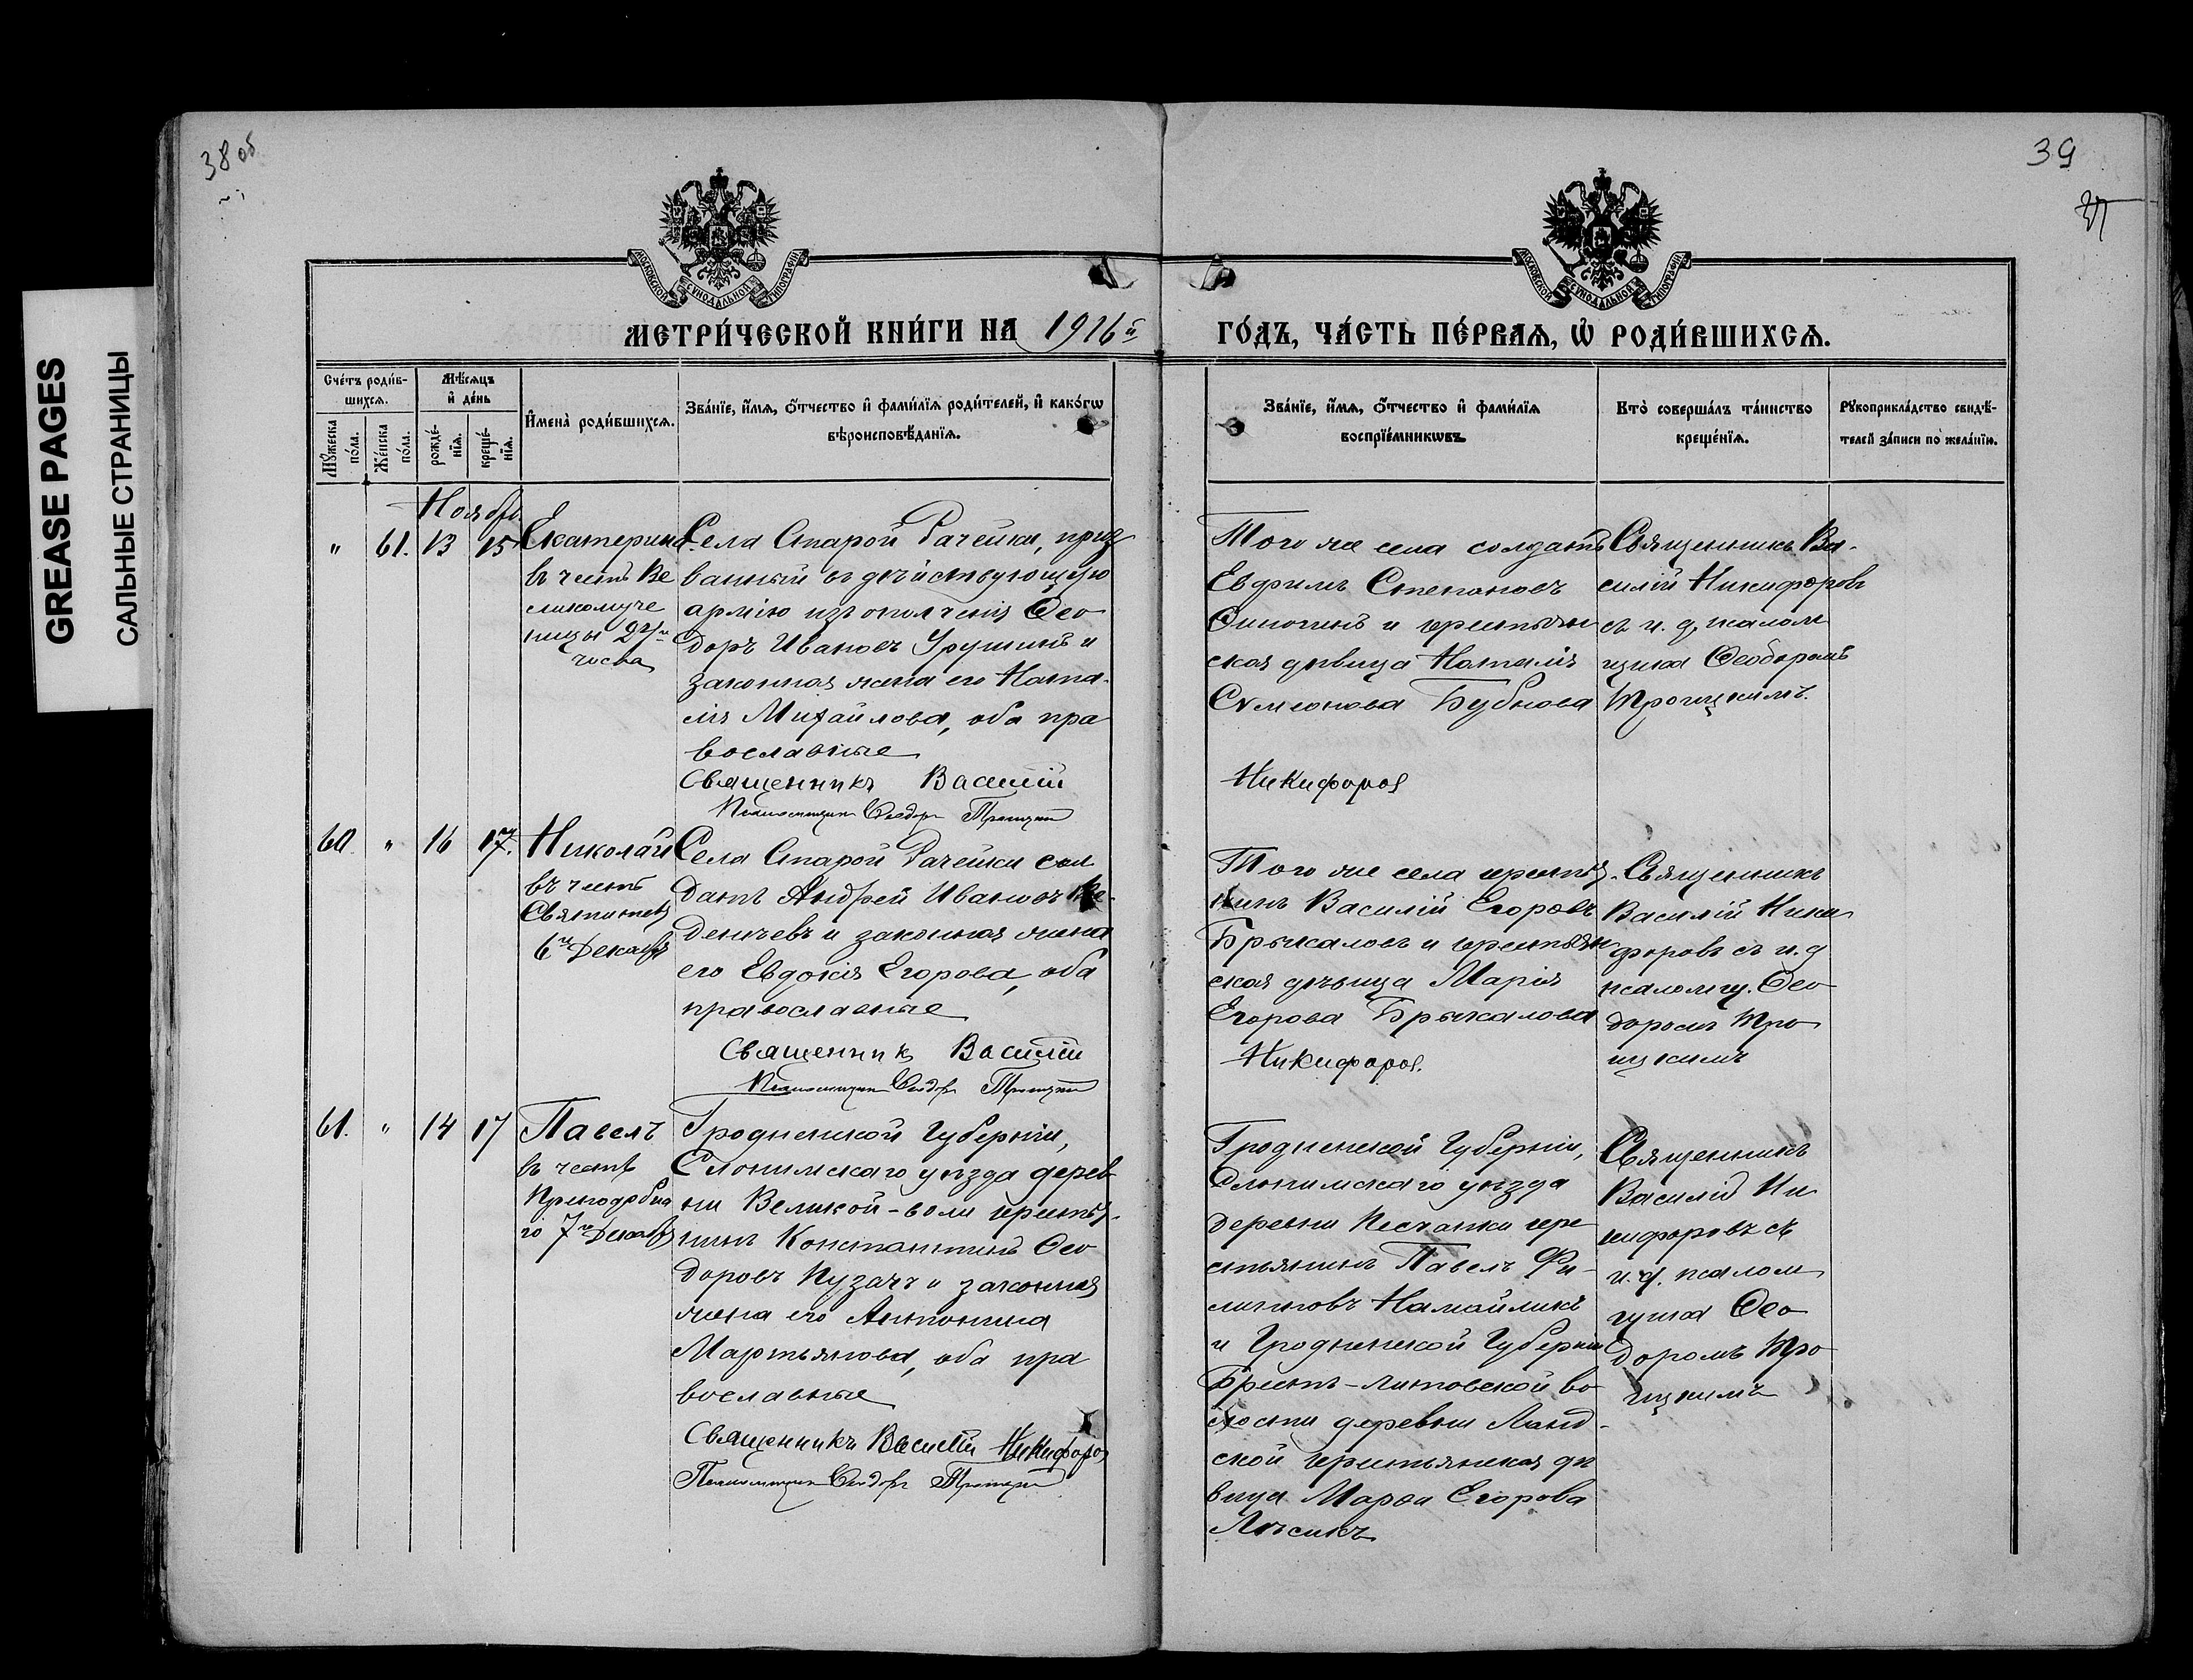 38 об
39
GREASE PAGES
САЛЬНЫЕ СТРАНИЦЫ
МОСКОВСКОЙ СѴНОДАЛЬНОЙ ТИПОГРАФІИ
МОСКОВСКОЙ СѴНОДАЛЬНОЙ ТИПОГРАФІИ
МЕТРИ́ЧЕСКОЙ КНИ́ГИ НА 1916 й
ГО́ДЪ, ЧА́СТЬ ПЕ́РВАѦ, Ѡ҆ РОДИ́ВШИХСѦ.
Сче́тъ роди́в-
шихсѧ.
Мѣ́сѧцъ
и҆ де́нь
Мꙋ́жеска
по́ла.
Же́нска
по́ла.
рожде́-
нїѧ.
креще́-
нїѧ.
И҆мена̀ роди́вшихсѧ.
Зва́нїе, и҆́мѧ, ѻ҆́тчество и҆ фами́лїѧ роди́телей, и҆ како́гѡ
вѣроисповѣ́данїѧ.
Зва́нїе, и҆́мѧ, ѻ҆́тчество и҆ фами́лїѧ
воспрїе́мникѡвъ.
Кто̀ соверша́лъ та́инство
креще́нїѧ.
Рꙋкоприкла́дство свидѣ́-
телей за́писи по̀ жела́нїю.
Ноябрь
" 61. 13 15
Екатерина
въ честь Ве
ликомуче
ницы 24го
числа
Села Старой Рачейки, приз
ванный въ действующую
армію изъ ополченія Ѳео
доръ Ивановъ Урушинъ и
законная жена его Ната-
лія Михайлова, оба пра
вославные
Священникъ Василій Никифоров
Псаломщикъ Ѳеодоръ Троицкій
Того же села солдатъ
Евфимъ Степановъ
Синогинъ и крестьян
ская дѣвица Наталія
Сѵмеонова Бубнова
Священникъ Ва-
силій Никифоровъ
съ и. д. псалом
щика Ѳеодоромъ
Троицкимъ.
60. " 16 17.
Николай
въ честь
Святителя
6го Декабря
Села Старой Рачейки сол
датъ Андрей Ивановъ
денчевъ и законная жена
его Евдокія Егорова, оба
православные
Священник Василій Никифоров.
Псаломщикъ Ѳеодоръ Троицкій
Того же села крестья-
нинъ Василій Егоровъ
Брыкаловъ и крестьян
ская дѣвица Марія
Егорова Брыкалова
Священникъ
Василій Ники
форовъ съ и. д
псаломщ. Ѳео
доромъ Тро
ицкимъ
61. " 14 17
Павелъ
въ честь
Преподобна
го 7го Декабря
Гродненской Губерніи,
Слонимскаго уѣзда дерев
ни Великой-воли крестья-
нинъ Константинъ Ѳео
доровъ Пузачъ и законная
жена его Антонина
Мартьянова, оба пра
вославные
Священникъ Василій Никифоров
Псаломщикъ Ѳеодоръ Троицкій
Гродненской Губерніи,
Слонимскаго уѣзда
деревни Песчанки кре
стьянинъ Павелъ Фи-
липповъ Намайликъ
и Гродненской Губерніи
Брестъ-Литовской во
лости деревни Ланд-
ской крестьянская дѣ
вица Марѳа Егорова
Лѣсикъ
Священникъ
Василій Ни
кифоровъ съ
и. д. псалом
щика Ѳео
доромъ Тро
ицкимъ